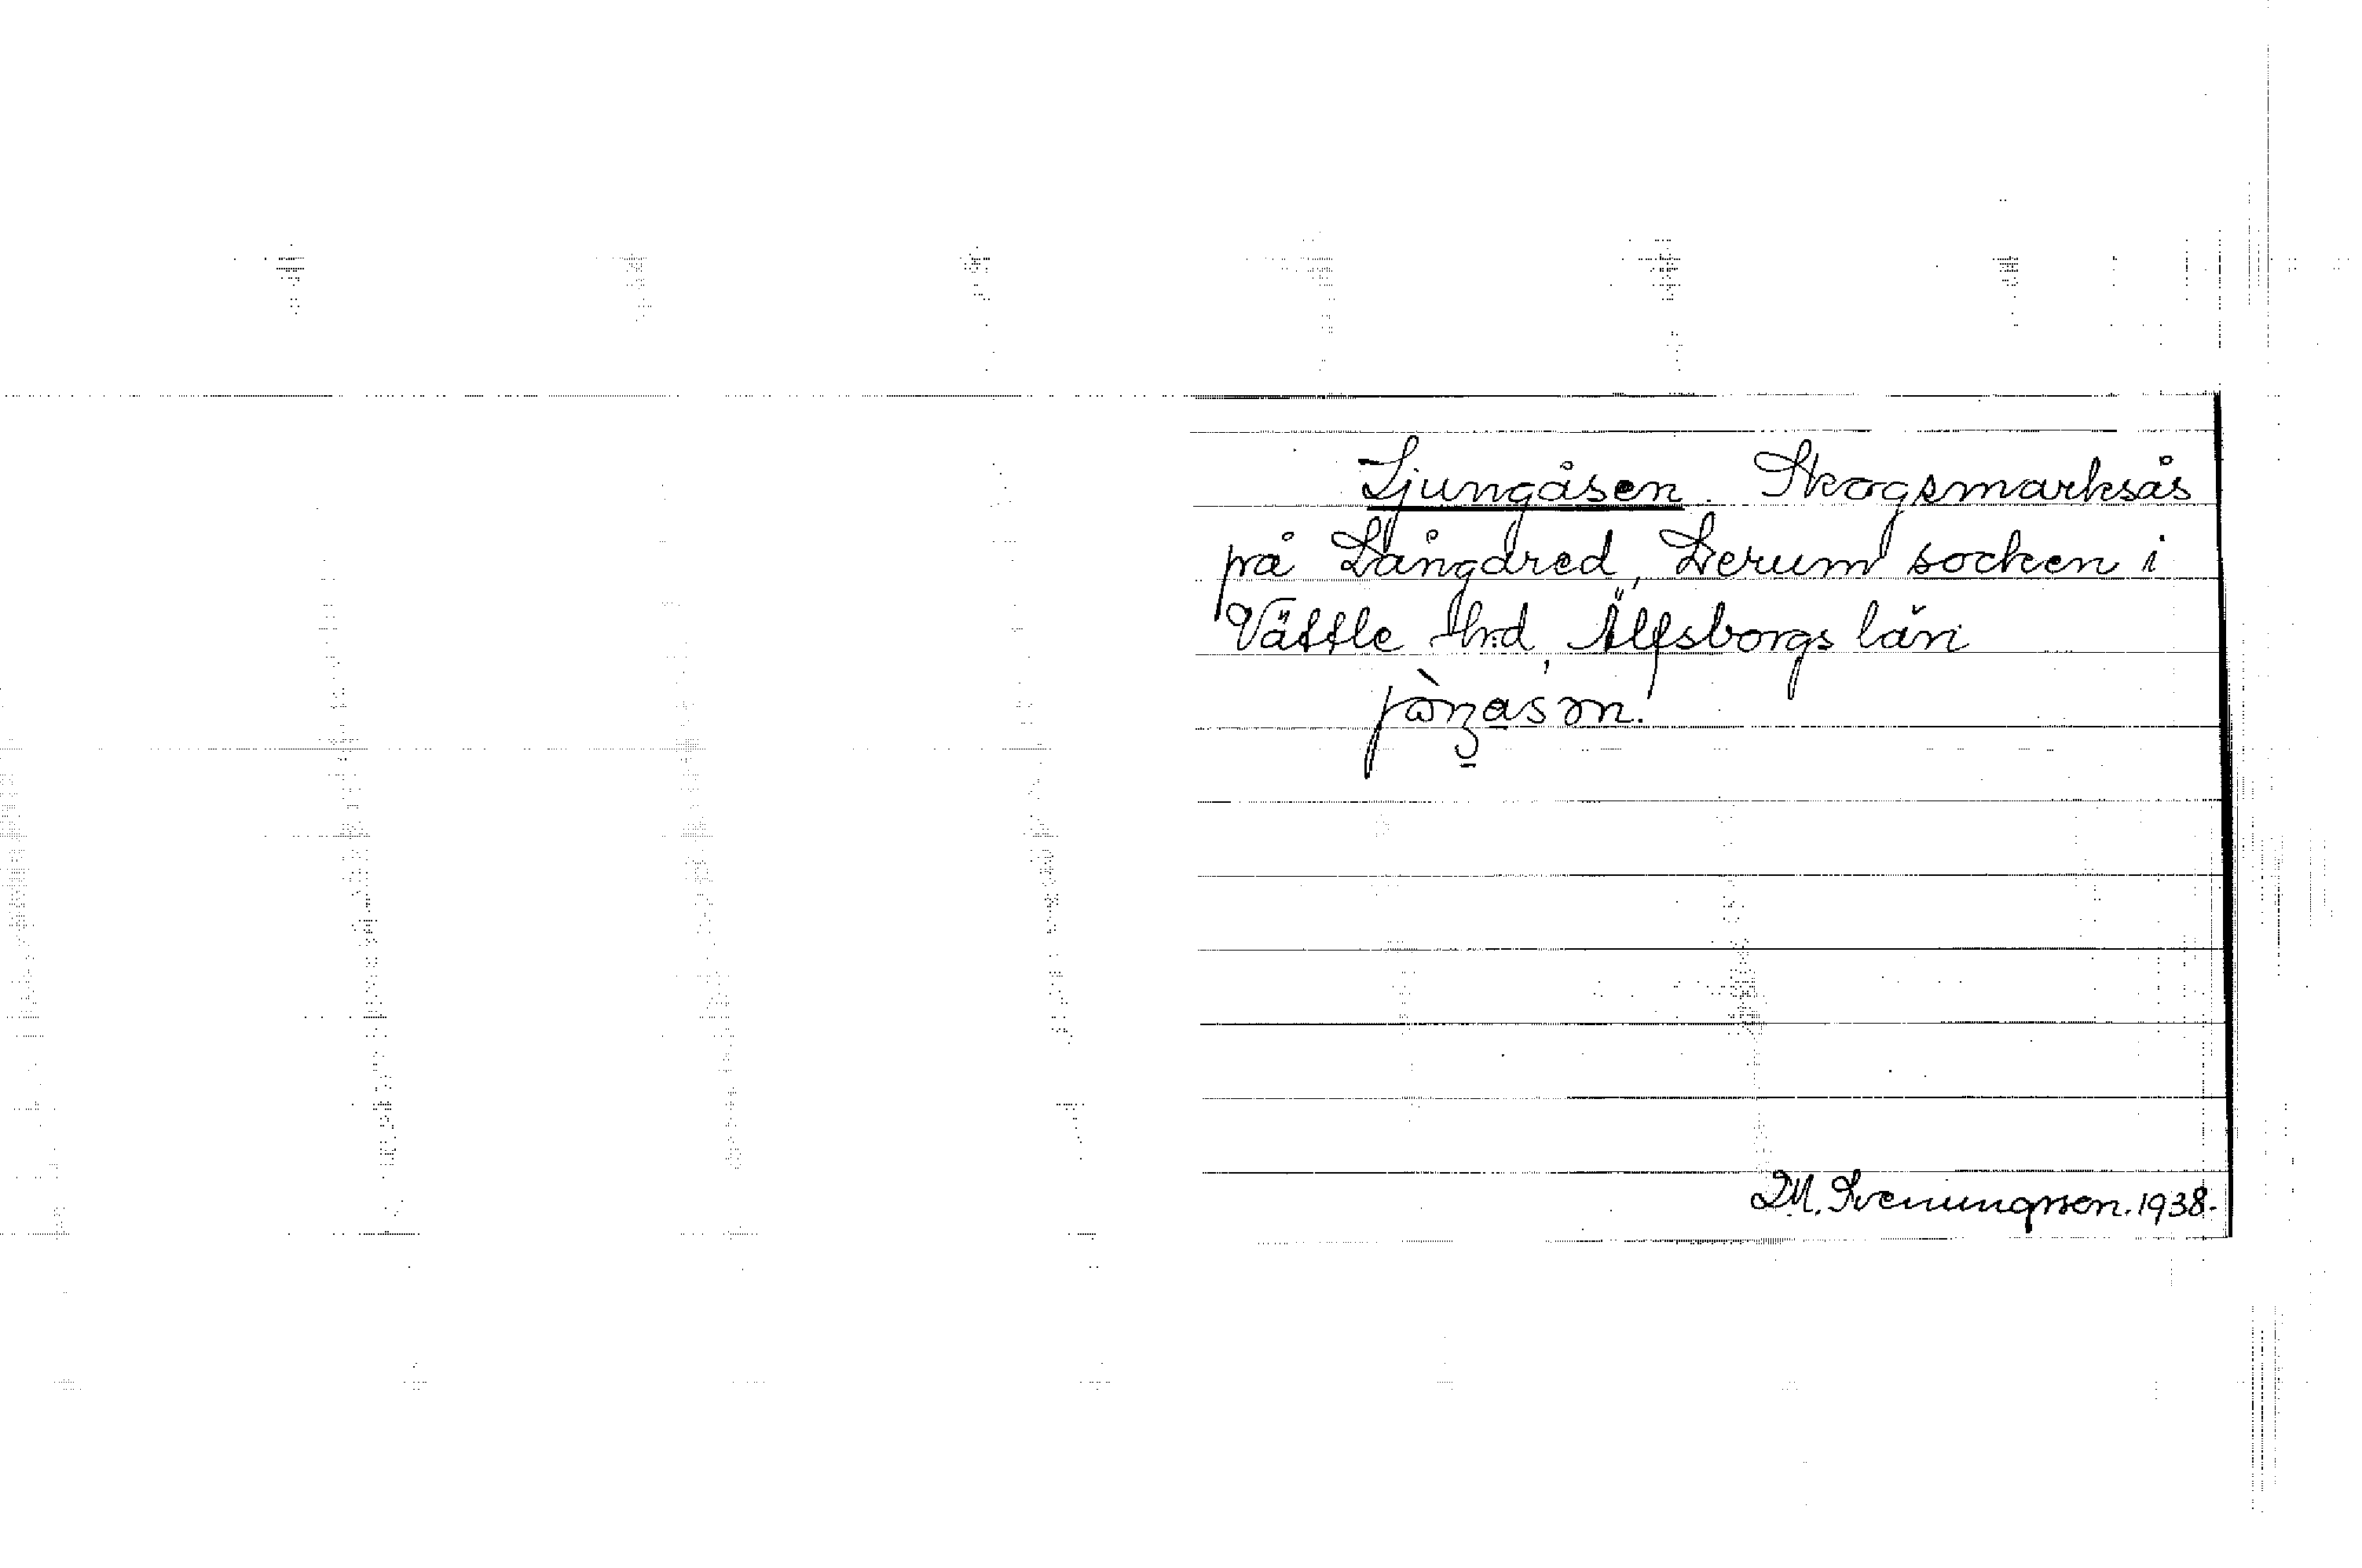 Ljungåsen. Skogsmarksås
på Långared, Lerum socken i
Vättle h:d, Älfsborgs län
D.M. Sveningsson. 1938.